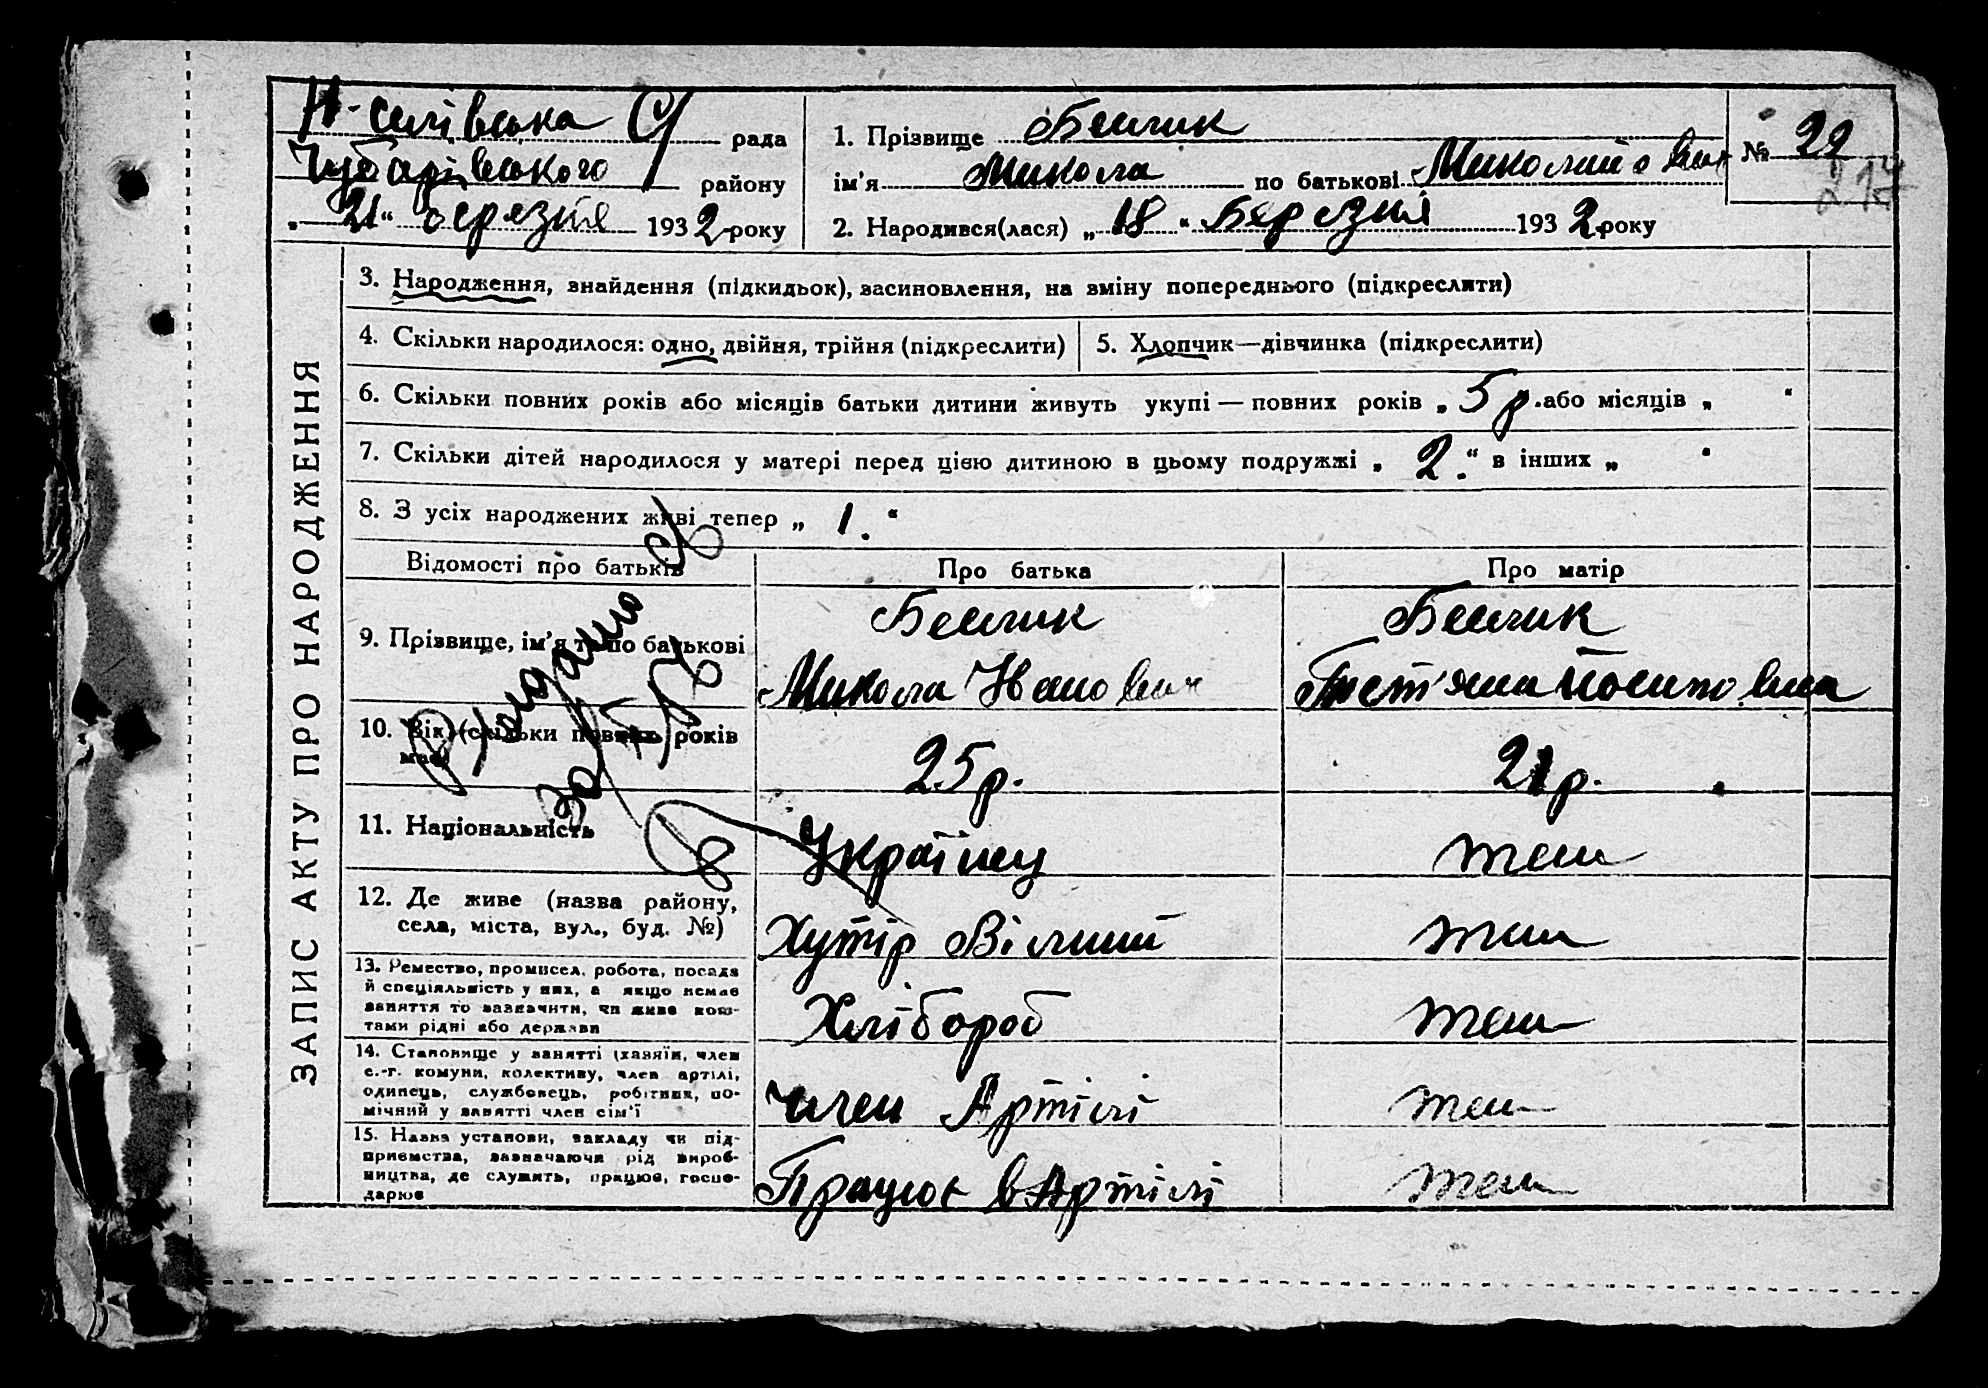 Н-селівська С/ рада
Чубарівського району
„ 21 " березня 1932 року
1. Прізвище Бенчик
ім'я Микола по батькові Миколайович
№ 22
2. Народився(лася) „ 18 " Березня 1932 року
ЗАПИС АКТУ ПРО НАРОДЖЕННЯ
3. Народження, знайдення (підкидьок), засиновлення, на зміну попереднього (підкреслити)
4. Скільки народилося: одно, двійня, трійня (підкреслити)
5. Хлопчик—дівчинка (підкреслити)
6. Скільки повних років або місяців батьки дитини живуть укупі — повних років „ 5 р. або місяців „ "
7. Скільки дітей народилося у матері перед цією дитиною в цьому подружжі „ 2." в інших „ "
8. З усіх народжених живі тепер „ 1. "
Відомості про батьків
Про батька
Про матір
9. Прізвище, ім'я та по батькові
Бенчик
Микола Іванович
Бенчик
Тет'яна Йосиповна
10. Вік (скільки повних років
має)
25 р.
21 р.
11. Національність
Українец
теж
12. Де живе (назва району,
села, міста, вул., буд. №)
Хутір Вільний
теж
13. Ремество, промисел, робота, посада
й спеціяльність у них, а якщо немає
заняття то зазначити, чи живе кош-
тами рідні або держави
Хлібороб
теж
14. Становище у занятті (хазяїн, член
с.-г. комуни, колективу, член артілі,
одинець, службовець, робітник, по-
мічний у занятті член сім'ї
член Артілі
теж
15. Назва установи, закладу чи під-
приємства, зазначаючи рід вироб-
ництва, де служить, працює, госпо-
дарює
Працює в Артілі
теж